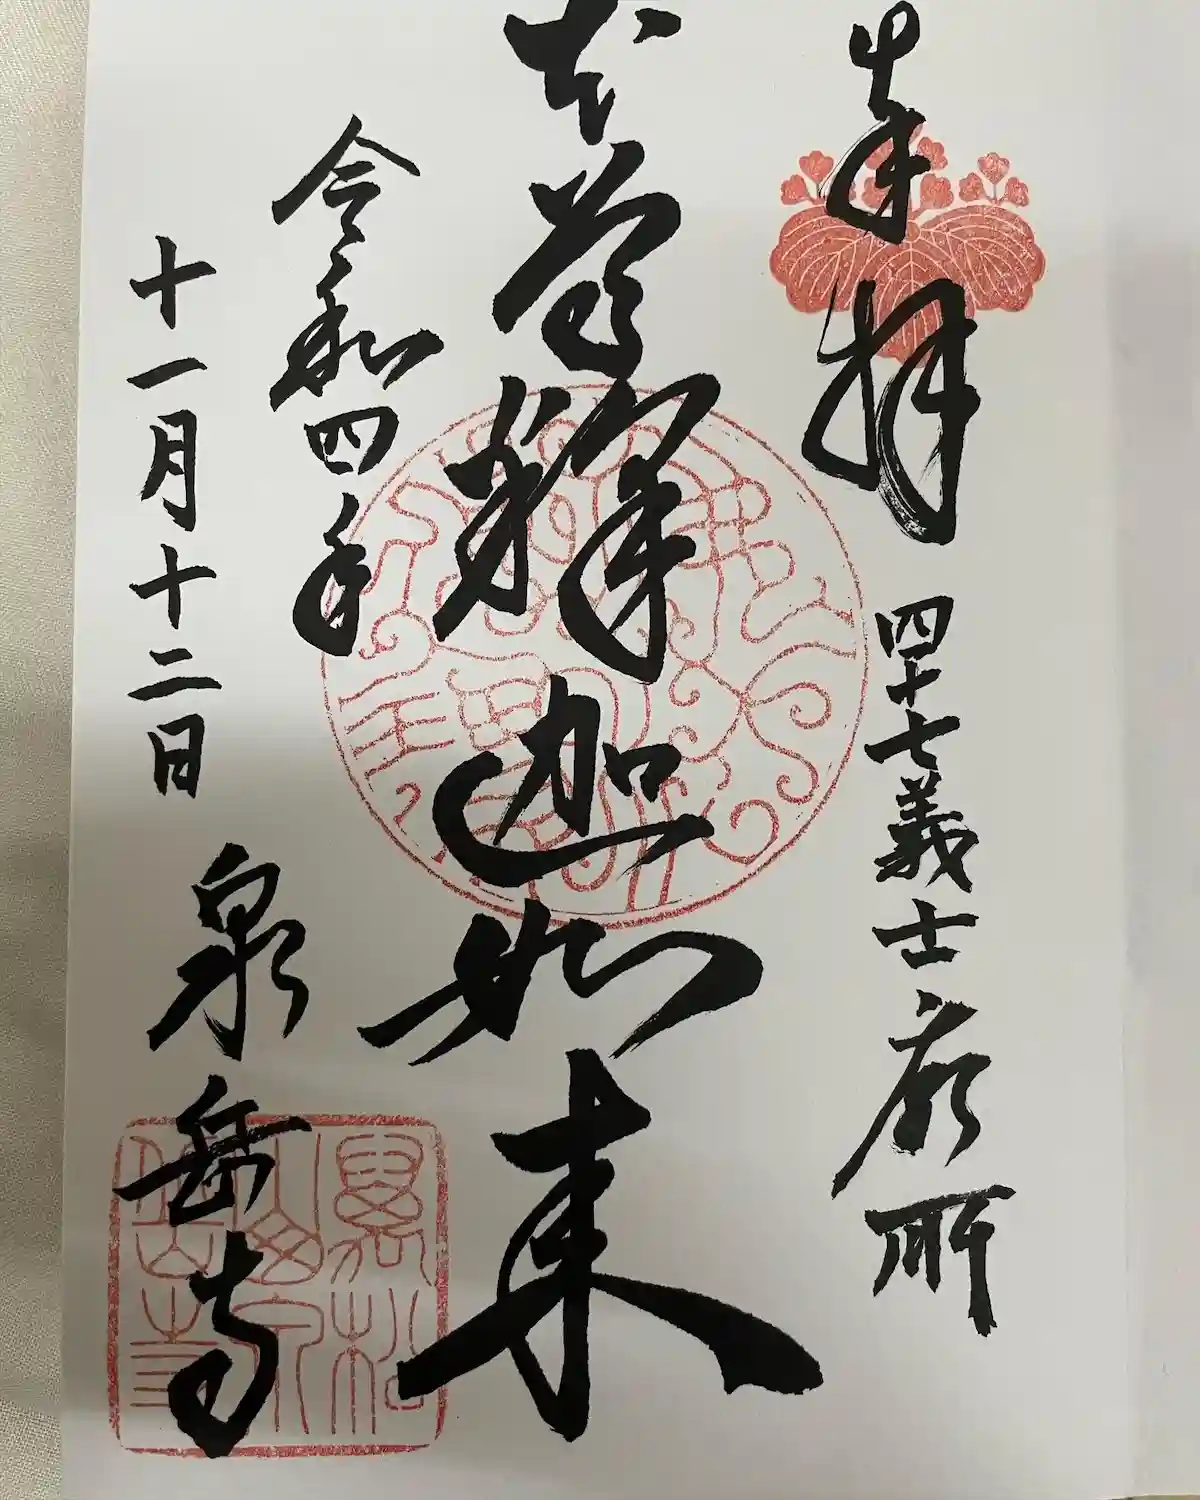 奉拝
四十七義士廟所
本尊釋迦如来
令和四年
十一月十二日
泉岳寺
萬松山泉岳寺